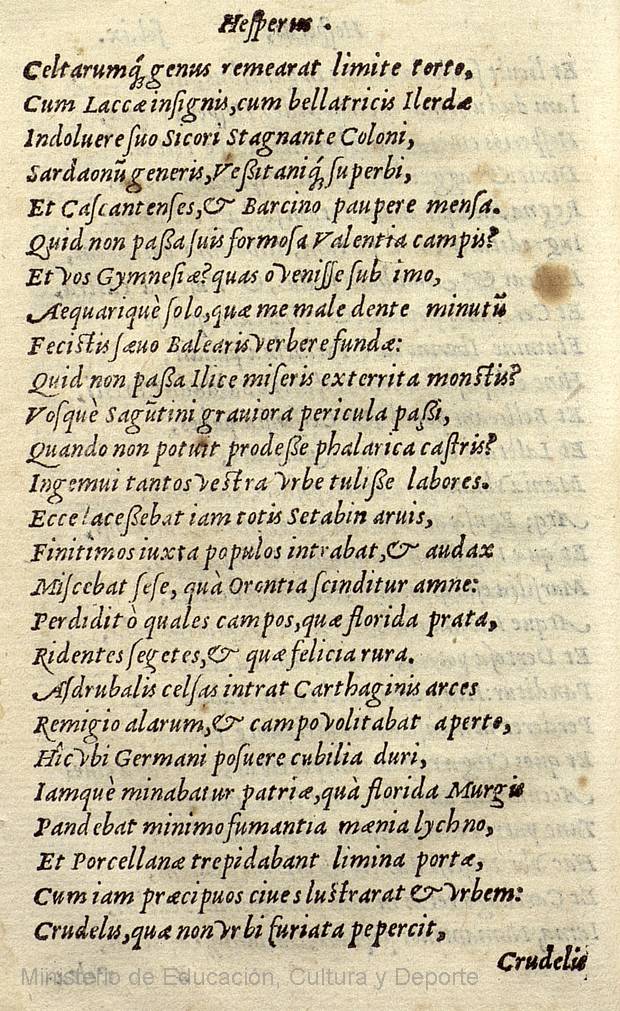 Hesperus.
Celtarumq́ꝫ genus remearat limite torto,
Cum Laccæ insignis, cum bellatricis Ilerdæ
Indoluere suo Sicori Stagnante Coloni,
Sardaonũ generis, Veßitaniq́ꝫ superbi,
Et Cascantenses, & Barcino paupere mensa.
Quid non paßa suis formosa Valentia campis?
Et vos Gymnesiæ? quas ovenisse sub imo,
Aequariquè solo, quæ me male dente minutũ
Fecistis sævo Balearis verbere fundæ:
Quid non paßa Ilice miseris exterrita monstis?
Vosquè Sagũtini graviora pericula paßi,
Quando non potuit prodeße phalarica castris?
Ingemui tantos vestra vrbe tuliße labores.
Ecce laceßebat iam totis Setabin aruis,
Finitimos iuxta populos intrabat, & audax
Miscebat sese, quà Orontia scinditur amne:
Perdidit ò quales campos, quæ florida prata,
Ridentes segetes, & quæ felicia rura.
Asdrubalis celsas intrat Carthaginis arces
Remigio alarum, & campo volitabat aperto,
Hîc vbi Germani posuere cubilia duri,
Iamquè minabatur patriæ, quà florida Murgis
Pandebat minimo fumantia mænia lychno,
Et Porcellanæ trepidabant limina portæ,
Cum iam præcipuos ciues lustrarat & vrbem:
Crudelis, quæ non vrbi furiata pepercit,
Crudelis
Ministerio de Educación, Cultura y Deporte